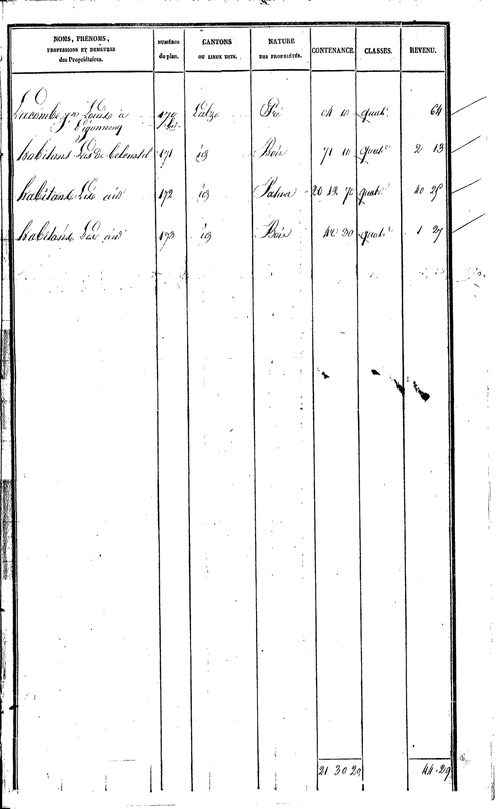 NOMS, PRÉNOMS,
PROFESSIONS ET DEMEURES
des Propriétaires.
NUMÉROS
du plan.
CANTONS
OU LIEUX DITS.
NATURE
DES PROPRIÉTÉS.
CONTENANCE.
CLASSES.
REVENU.
Lacombe Louis à 170 Pré 04 10 quat. 64
bis.
habitans Les de 171 id Bois 71 10 quat. 2 13
habitans Les 172 id Pature 20 12 70 quat. 40 25
habitans Les 173 id Bois 42 30 quat. 1 27
21 30 20 44.29